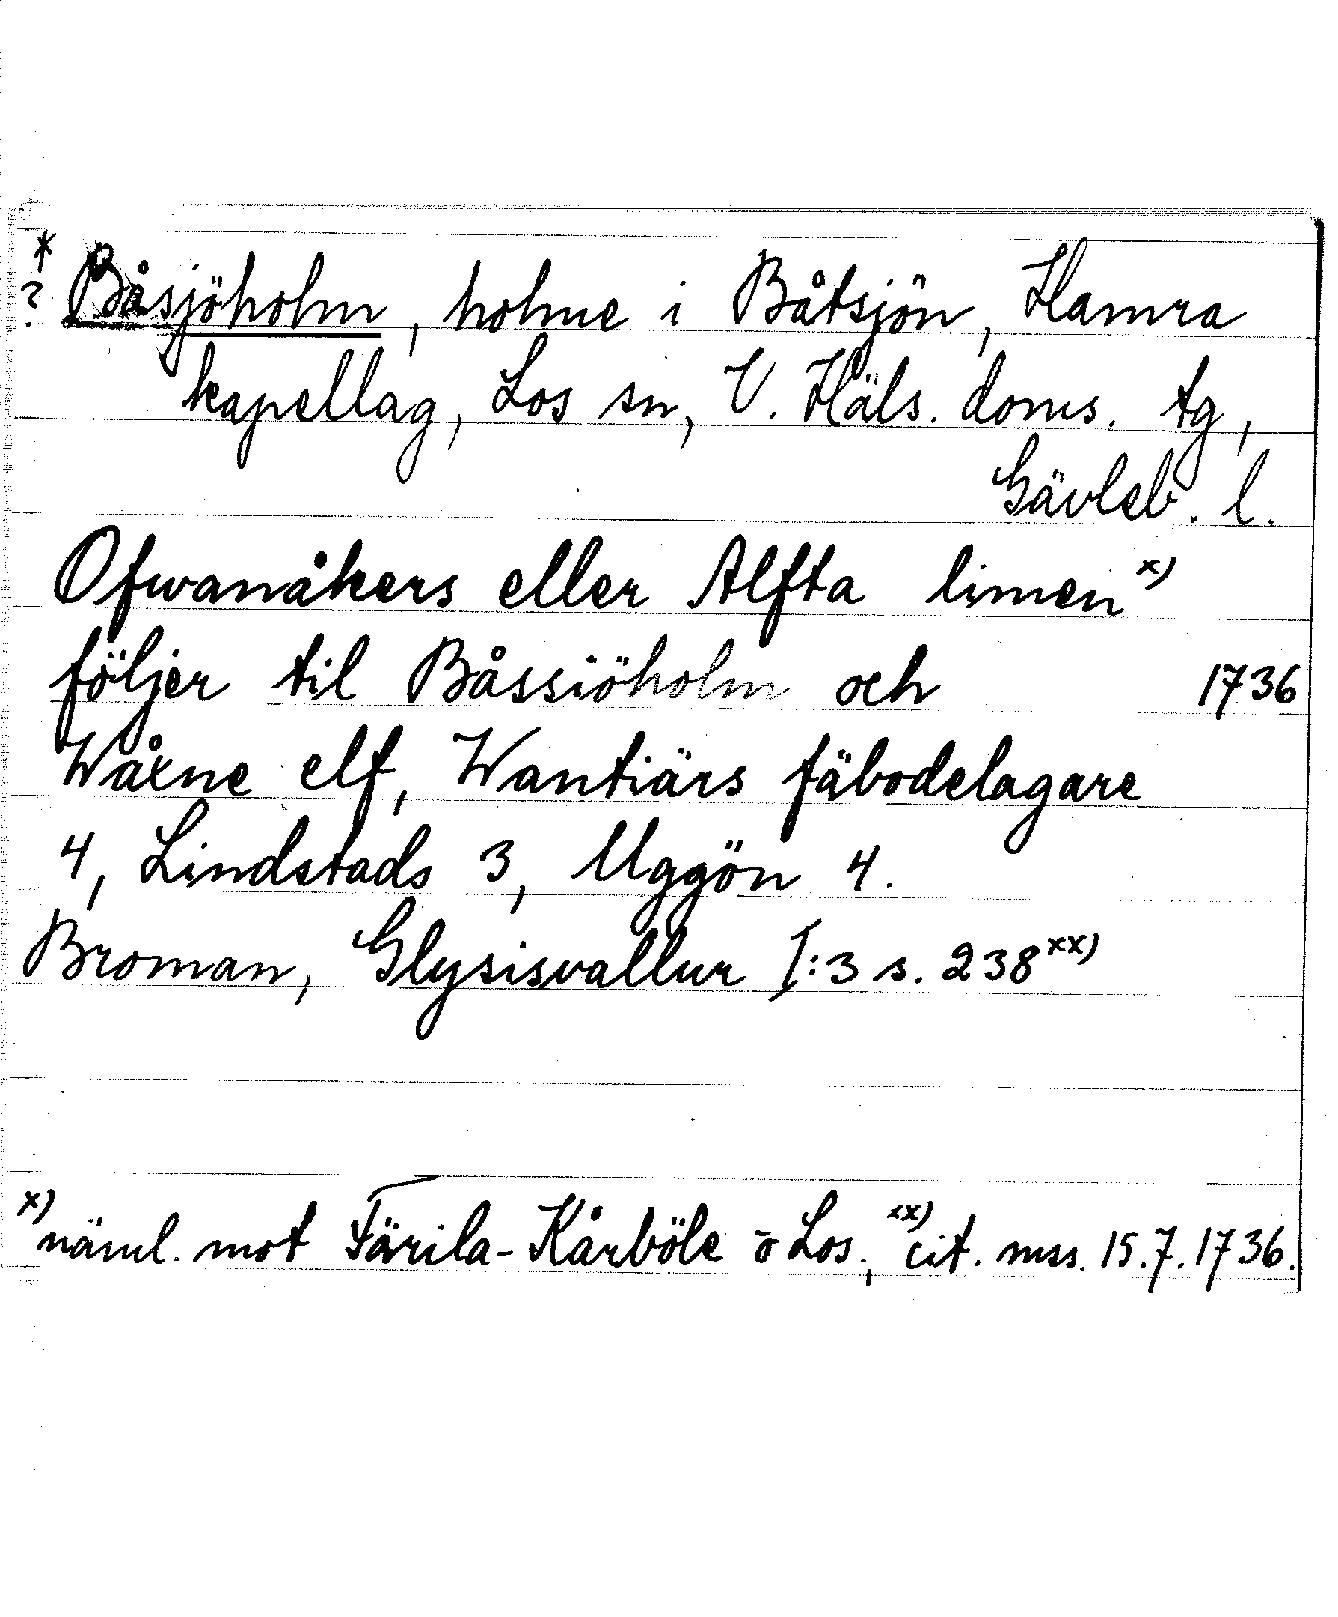 *
? Båsjöholm, holme i Båtsjön, Hamra
kapellag, Los sn, V. Häls. doms. tg,
Gävleb. l.
Ofwanåkers eller Alfta limen x)
följer til Båssiöholm och 1736
Wåxne elf, Wantiärs fäbodelagare
4, Lindstads 3, Uggön 4.
Broman, Glysisvallur I:3 s. 238 xx)
x) näml. mot Färila-Kårböle o Los., xx) cit. mss. 15.7.1736.